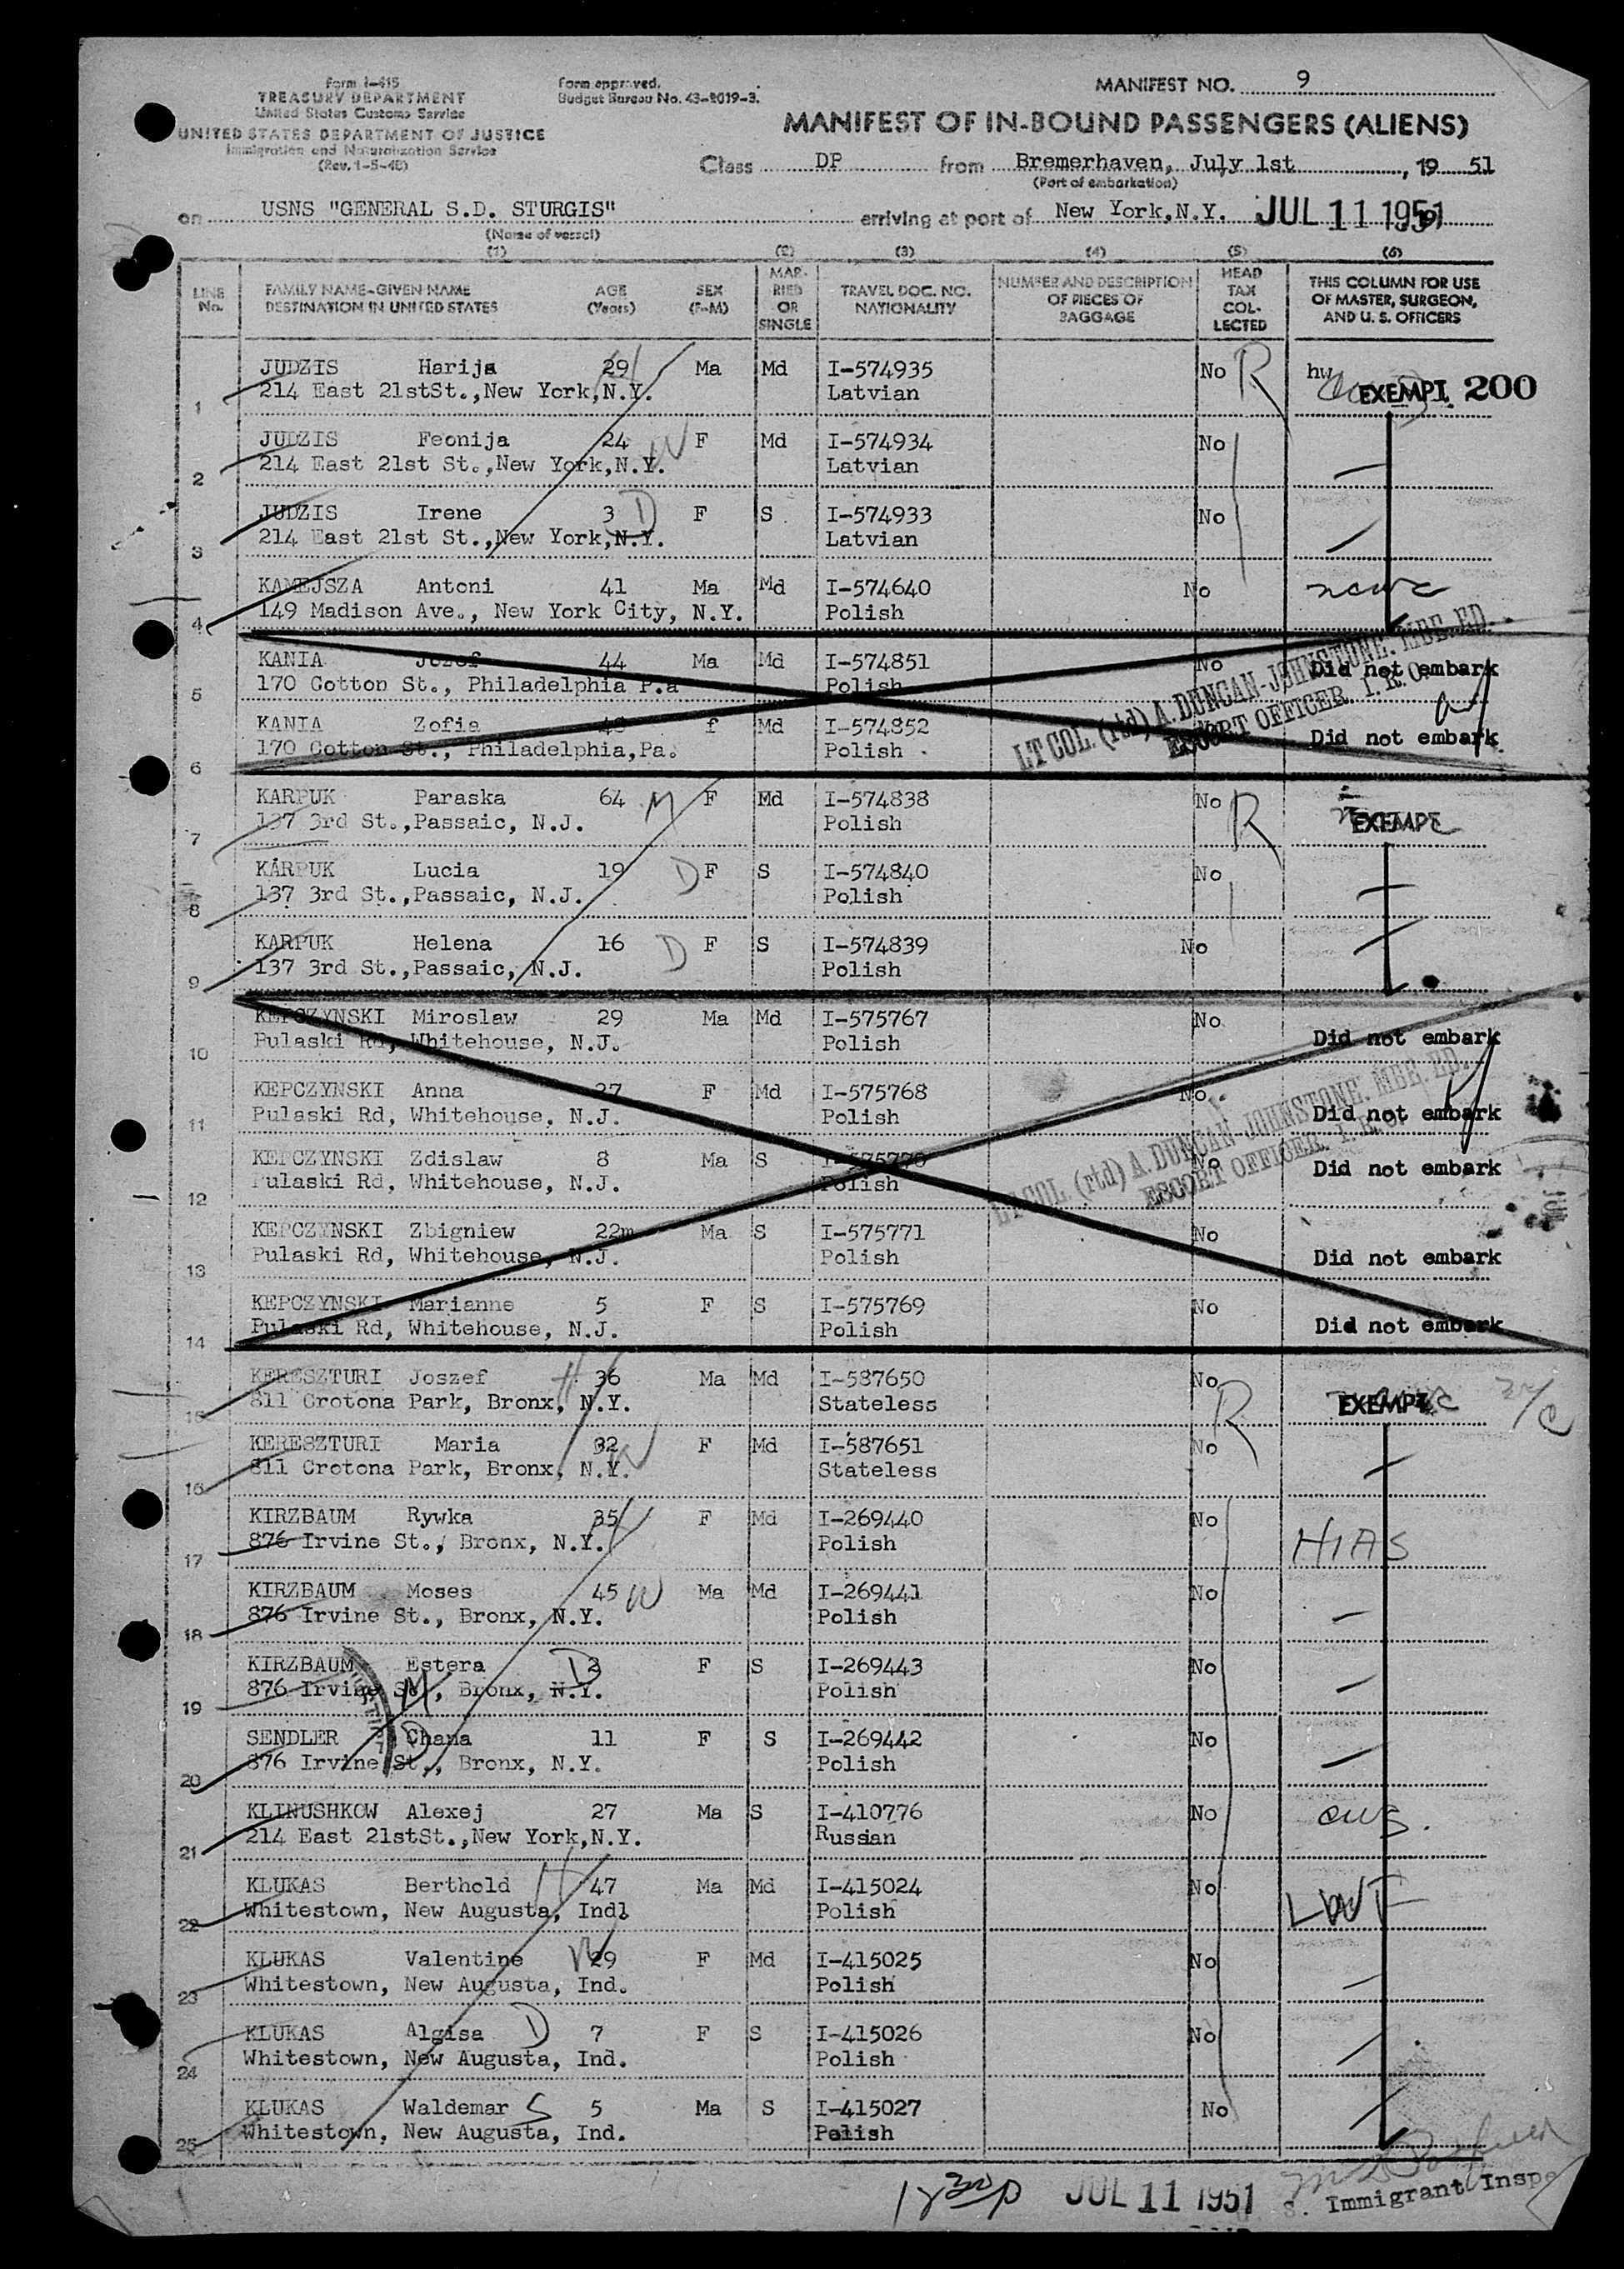 Form I-415
TREASURY DEPARTMENT
United States Customs Service
UNITED STATES DEPARTMENT OF JUSTICE
Immigration and Naturalization Service
(Rev. 1-5-48)
Form approved.
Budget Bureau No. 43-R019-3.
MANIFEST NO. 9
MANIFEST OF IN-BOUND PASSENGERS (ALIENS)
Class DP from Bremerhaven, July 1st, 19 51
(Port of embarkation)
on USNS "GENERAL S.D. STURGIS" arriving at port of New York,N.Y. JUL 11 1951
(Name of vessel)
(1) (2) (3) (4) (5) (6)
LINE No. FAMILY NAME-GIVEN NAME DESTINATION IN UNITED STATES AGE (Years) SEX (F-M) MARRIED OR SINGLE TRAVEL DOC. NO. NATIONALITY NUMBER AND DESCRIPTION OF PIECES OF BAGGAGE HEAD TAX COLLECTED THIS COLUMN FOR USE OF MASTER, SURGEON, AND U. S. OFFICERS
JUDZIS Harija 29 Ma Md I-574935 No R hw EXEMPT 200
1 214 East 21stSt.,New York,N.Y. Latvian
JUDZIS Feonija 24 W F Md I-574934 No
2 214 East 21st St.,New York,N.Y. Latvian
JUDZIS Irene 3 D F S I-574933 No
3 214 East 21st St.,New York,N.Y. Latvian
KAMEJSZA Antoni 41 Ma Md I-574640 No ncwc
4 149 Madison Ave., New York City, N.Y. Polish
KANIA Jozef 44 Ma Md I-574851 No Did not embark
5 170 Cotton St., Philadelphia P.a Polish
KANIA Zofia 48 f Md I-574852 Did not embark
6 170 Cotton St., Philadelphia,Pa. Polish
LT COL. (rtd) A. DUNCAN-JOHNSTONE. MBE. ED.
ESCORT OFFICER. I. R. O.
KARPUK Paraska 64 M F Md I-574838 No R EXEMPT
7 137 3rd St.,Passaic, N.J. Polish
KARPUK Lucia 19 D F S I-574840 No
8 137 3rd St.,Passaic, N.J. Polish
KARPUK Helena 16 D F S I-574839 No
9 137 3rd St.,Passaic, N.J. Polish
KEPCZYNSKI Miroslaw 29 Ma Md I-575767 No Did not embark
10 Pulaski Rd, Whitehouse, N.J. Polish
KEPCZYNSKI Anna 27 F Md I-575768 No Did not embark
11 Pulaski Rd, Whitehouse, N.J. Polish
KEPCZYNSKI Zdislaw 8 Ma S I-575770 No Did not embark
12 Pulaski Rd, Whitehouse, N.J. Polish
LT COL. (rtd) A. DUNCAN-JOHNSTONE. MBE. ED.
ESCORT OFFICER. I. R. O.
KEPCZYNSKI Zbigniew 22m Ma S I-575771 No Did not embark
13 Pulaski Rd, Whitehouse, N.J. Polish
KEPCZYNSKI Marianne 5 F S I-575769 No Did not embark
14 Pulaski Rd, Whitehouse, N.J. Polish
KERESZTURI Joszef H 36 Ma Md I-587650 No R EXEMPT
15 811 Crotona Park, Bronx, N.Y. Stateless
KERESZTURI Maria 32 W F Md I-587651 No
16 811 Crotona Park, Bronx, N.Y. Stateless
KIRZBAUM Rywka 35 F Md I-269440 No HIAS
17 876 Irvine St., Bronx, N.Y. Polish
KIRZBAUM Moses 45 W Ma Md I-269441 No
18 876 Irvine St., Bronx, N.Y. Polish
KIRZBAUM Estera D 2 F S I-269443 No
19 876 Irvine St., Bronx, N.Y. Polish
SENDLER Chana 11 F S I-269442 No
20 876 Irvine St., Bronx, N.Y. Polish
KLINUSHKOW Alexej 27 Ma S I-410776 No cws.
21 214 East 21stSt.,New York,N.Y. Russian
KLUKAS Berthold H 47 Ma Md I-415024 No LWF
22 Whitestown, New Augusta, Indl Polish
KLUKAS Valentine W 29 F Md I-415025 No
23 Whitestown, New Augusta, Ind. Polish
KLUKAS Algisa D 7 F S I-415026 No
24 Whitestown, New Augusta, Ind. Polish
KLUKAS Waldemar S 5 Ma S I-415027 No
25 Whitestown, New Augusta, Ind. Polish
JUL 11 1951 S. Immigrant Inspe